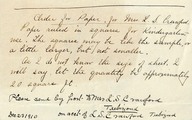 Order for Paper, for Mrs L. S. Crawford
Paper ruled in squares for Kindergarten
use. The squares may be like the sample, or
a little larger, but not smaller.
As I do not know the size of sheet I
will say let the quantity to approximately
20 square ft
Please send by Post to Mrs L. S. Crawford
on acct of L. S. Crawford